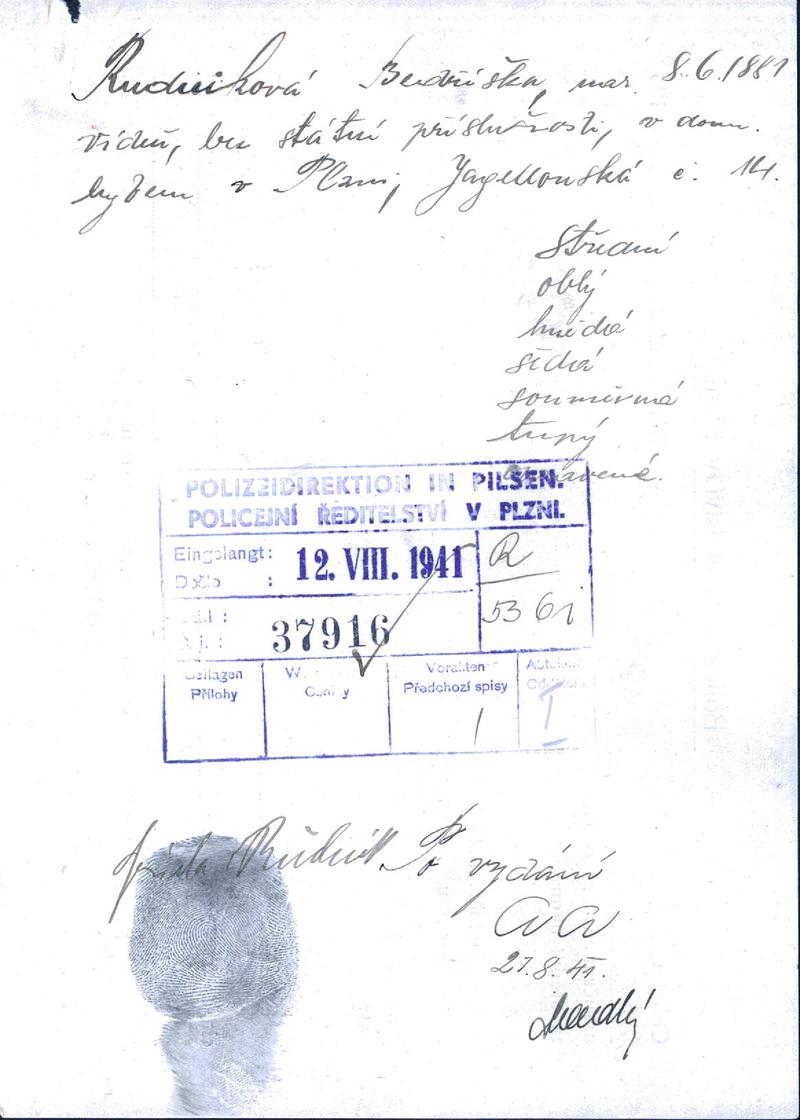 Rudniková Bedřiška, nar. 8.6.1881
vídni, bez státní příslušnosti, v domu.
bytem v Plzni, Jagellonská č. 14.
střední
oblý
hnědá
šedá
souměrná
tupý
POLIZEIDIREKTION IN PILSEN.
POLICEJNÍ ŘEDITELSTVÍ V PLZNI.
Eingelangt:
Došlo :
12. VIII. 1941
R
5361
37916
Beilagen
Přílohy
Vorakten
Předchozí spisy
1
I
Frieda Rudnik
Po vydání
a a
21.8.41.